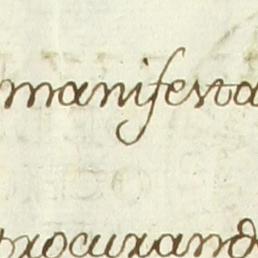 manifesta
procurand